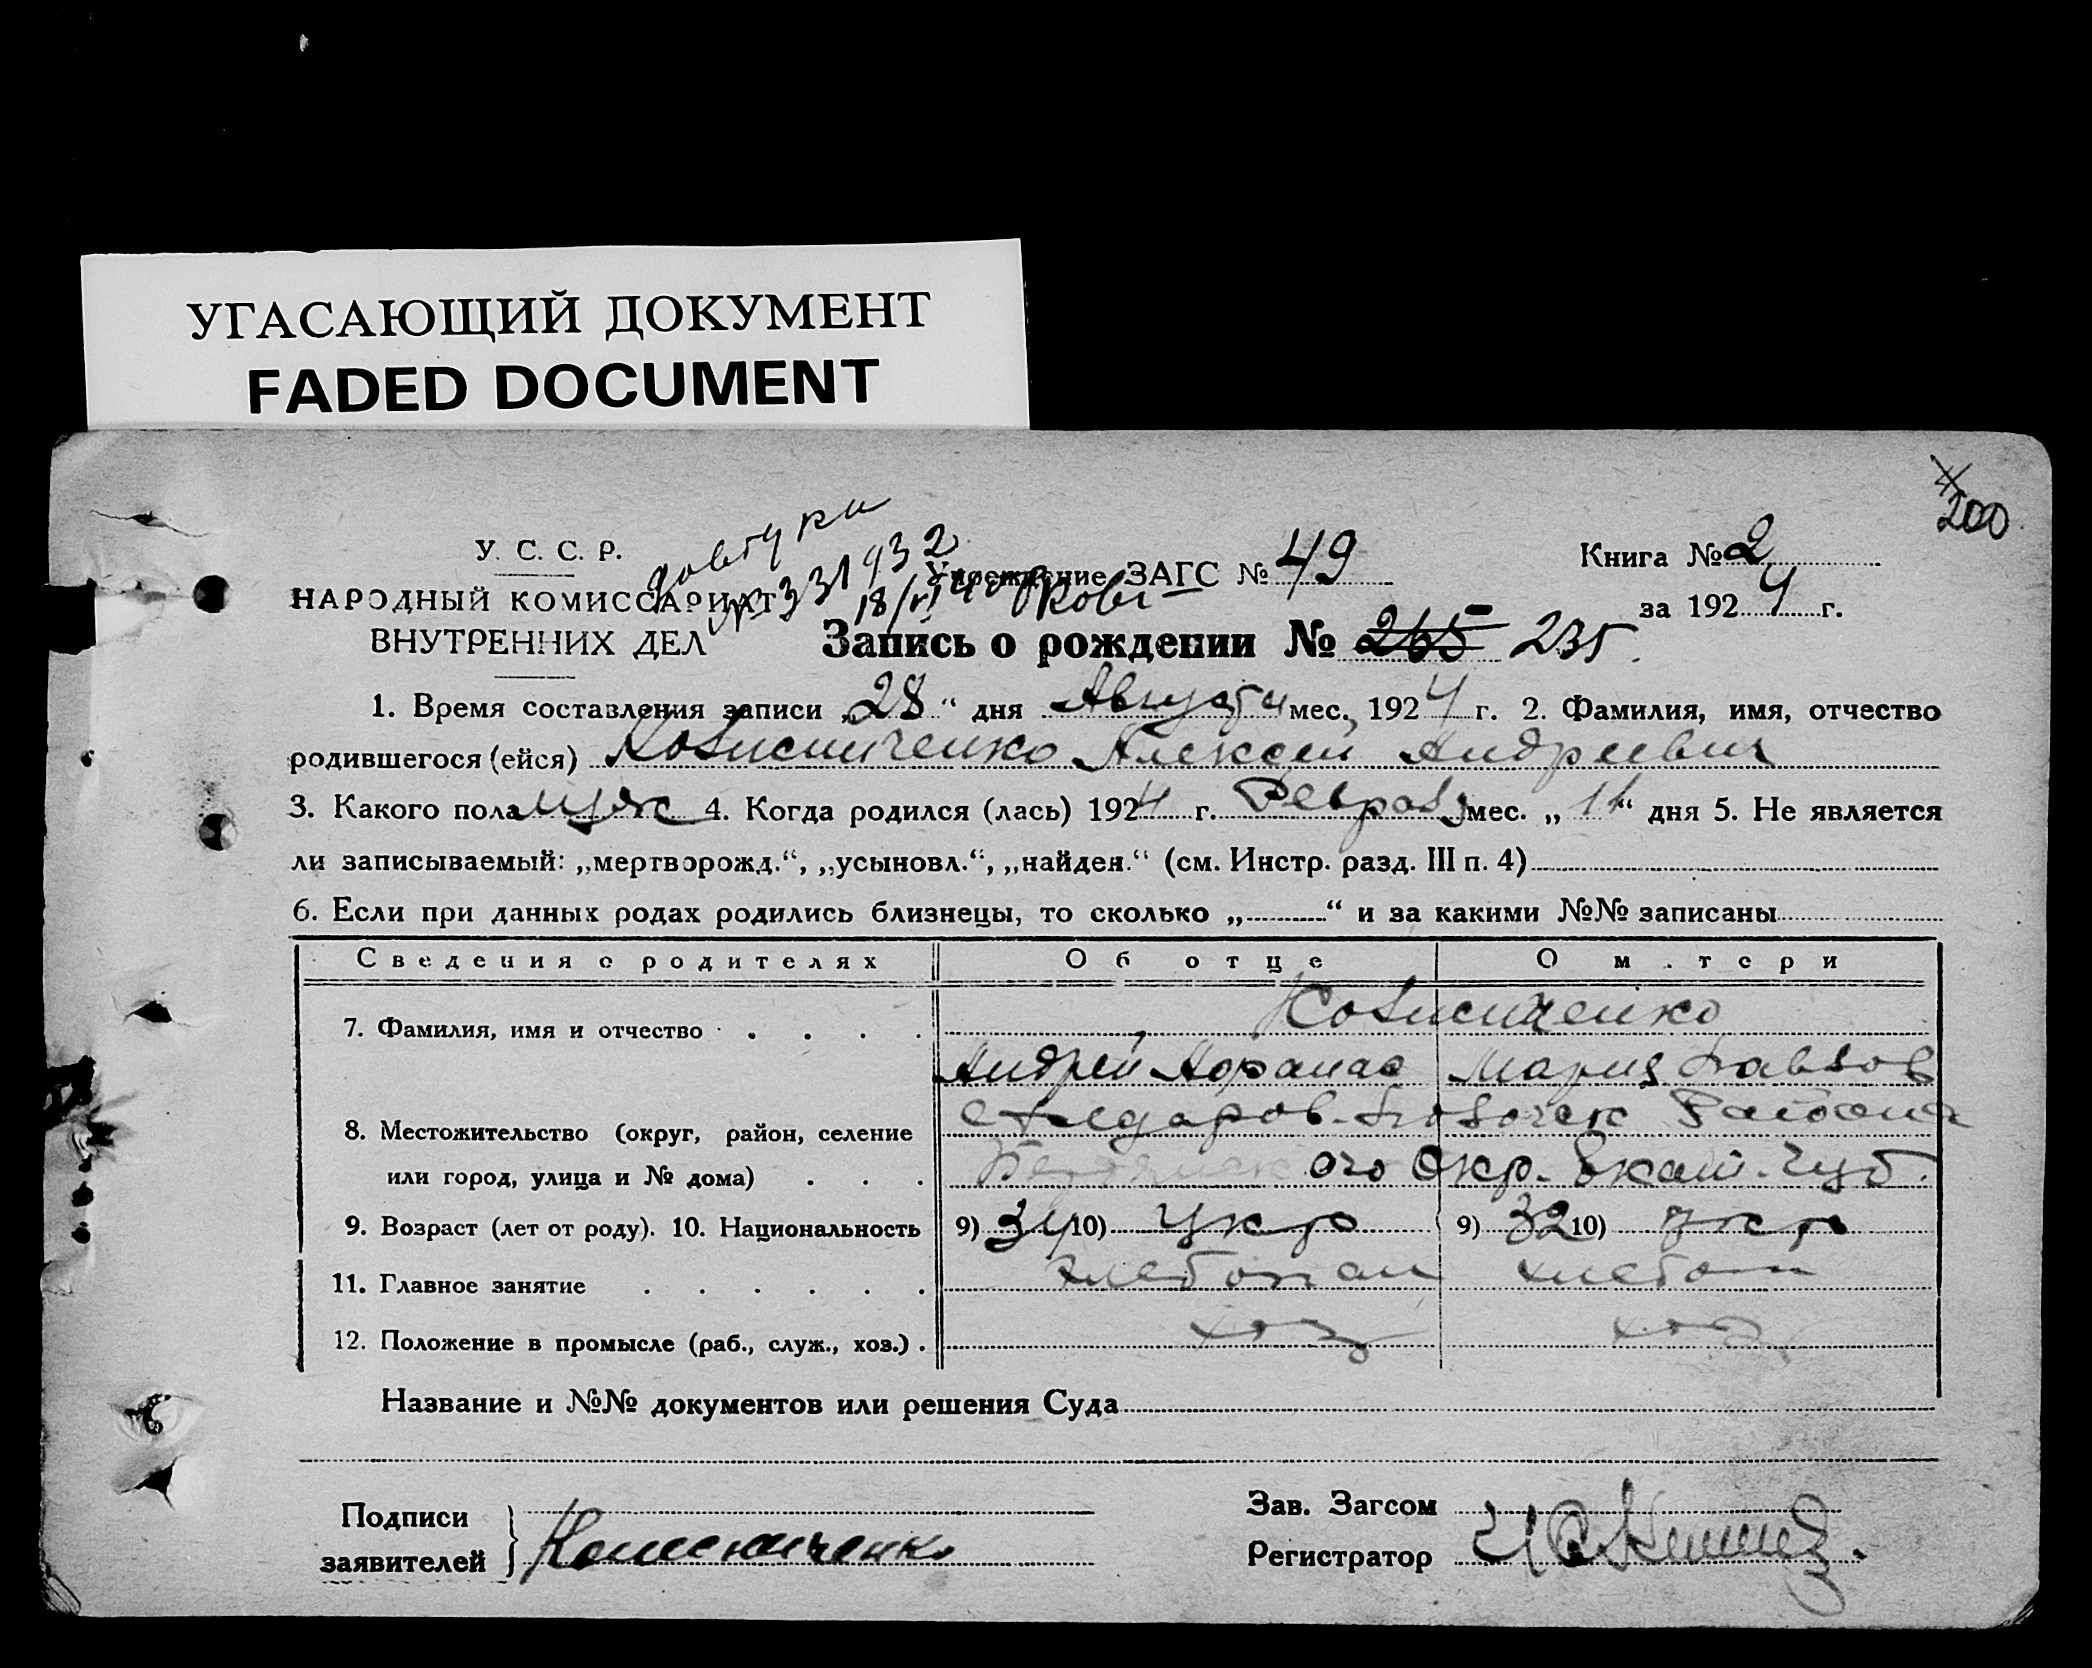 УГАСАЮЩИЙ ДОКУМЕНТ
FADED DOCUMENT
200
У. С. С. Р.
НАРОДНЫЙ КОМИССАРИАТ
ВНУТРЕННИХ ДЕЛ
№ 331932
Учреждение ЗАГС № 49
Книга № 2
за 1924 г.
Запись о рождении № 265 235
1. Время составления записи „28“ дня Августа мес. 1924 г. 2. Фамилия, имя, отчество
родившегося (ейся) Алексей Андреевич
3. Какого пола муж 4. Когда родился (лась) 1924 г. мес. „11“ дня 5. Не является
ли записываемый: „мертворожд.“, „усыновл.“, „найден.“ (см. Инстр. разд. III п. 4)
6. Если при данных родах родились близнецы, то сколько „ “ и за какими №№ записаны
Сведения о родителях Об отце О матери
7. Фамилия, имя и отчество
Андрей Афанас Мария
8. Местожительство (округ, район, селение района
или город, улица и № дома) ого Окр. Екат. Губ.
9. Возраст (лет от роду). 10. Национальность 9) 34 10) Укр 9) 32 10) Укр
11. Главное занятие хлебопаш хлебоп
12. Положение в промысле (раб., служ., хоз.) хоз хоз
Название и №№ документов или решения Суда
Подписи
заявителей
Зав. Загсом
Регистратор